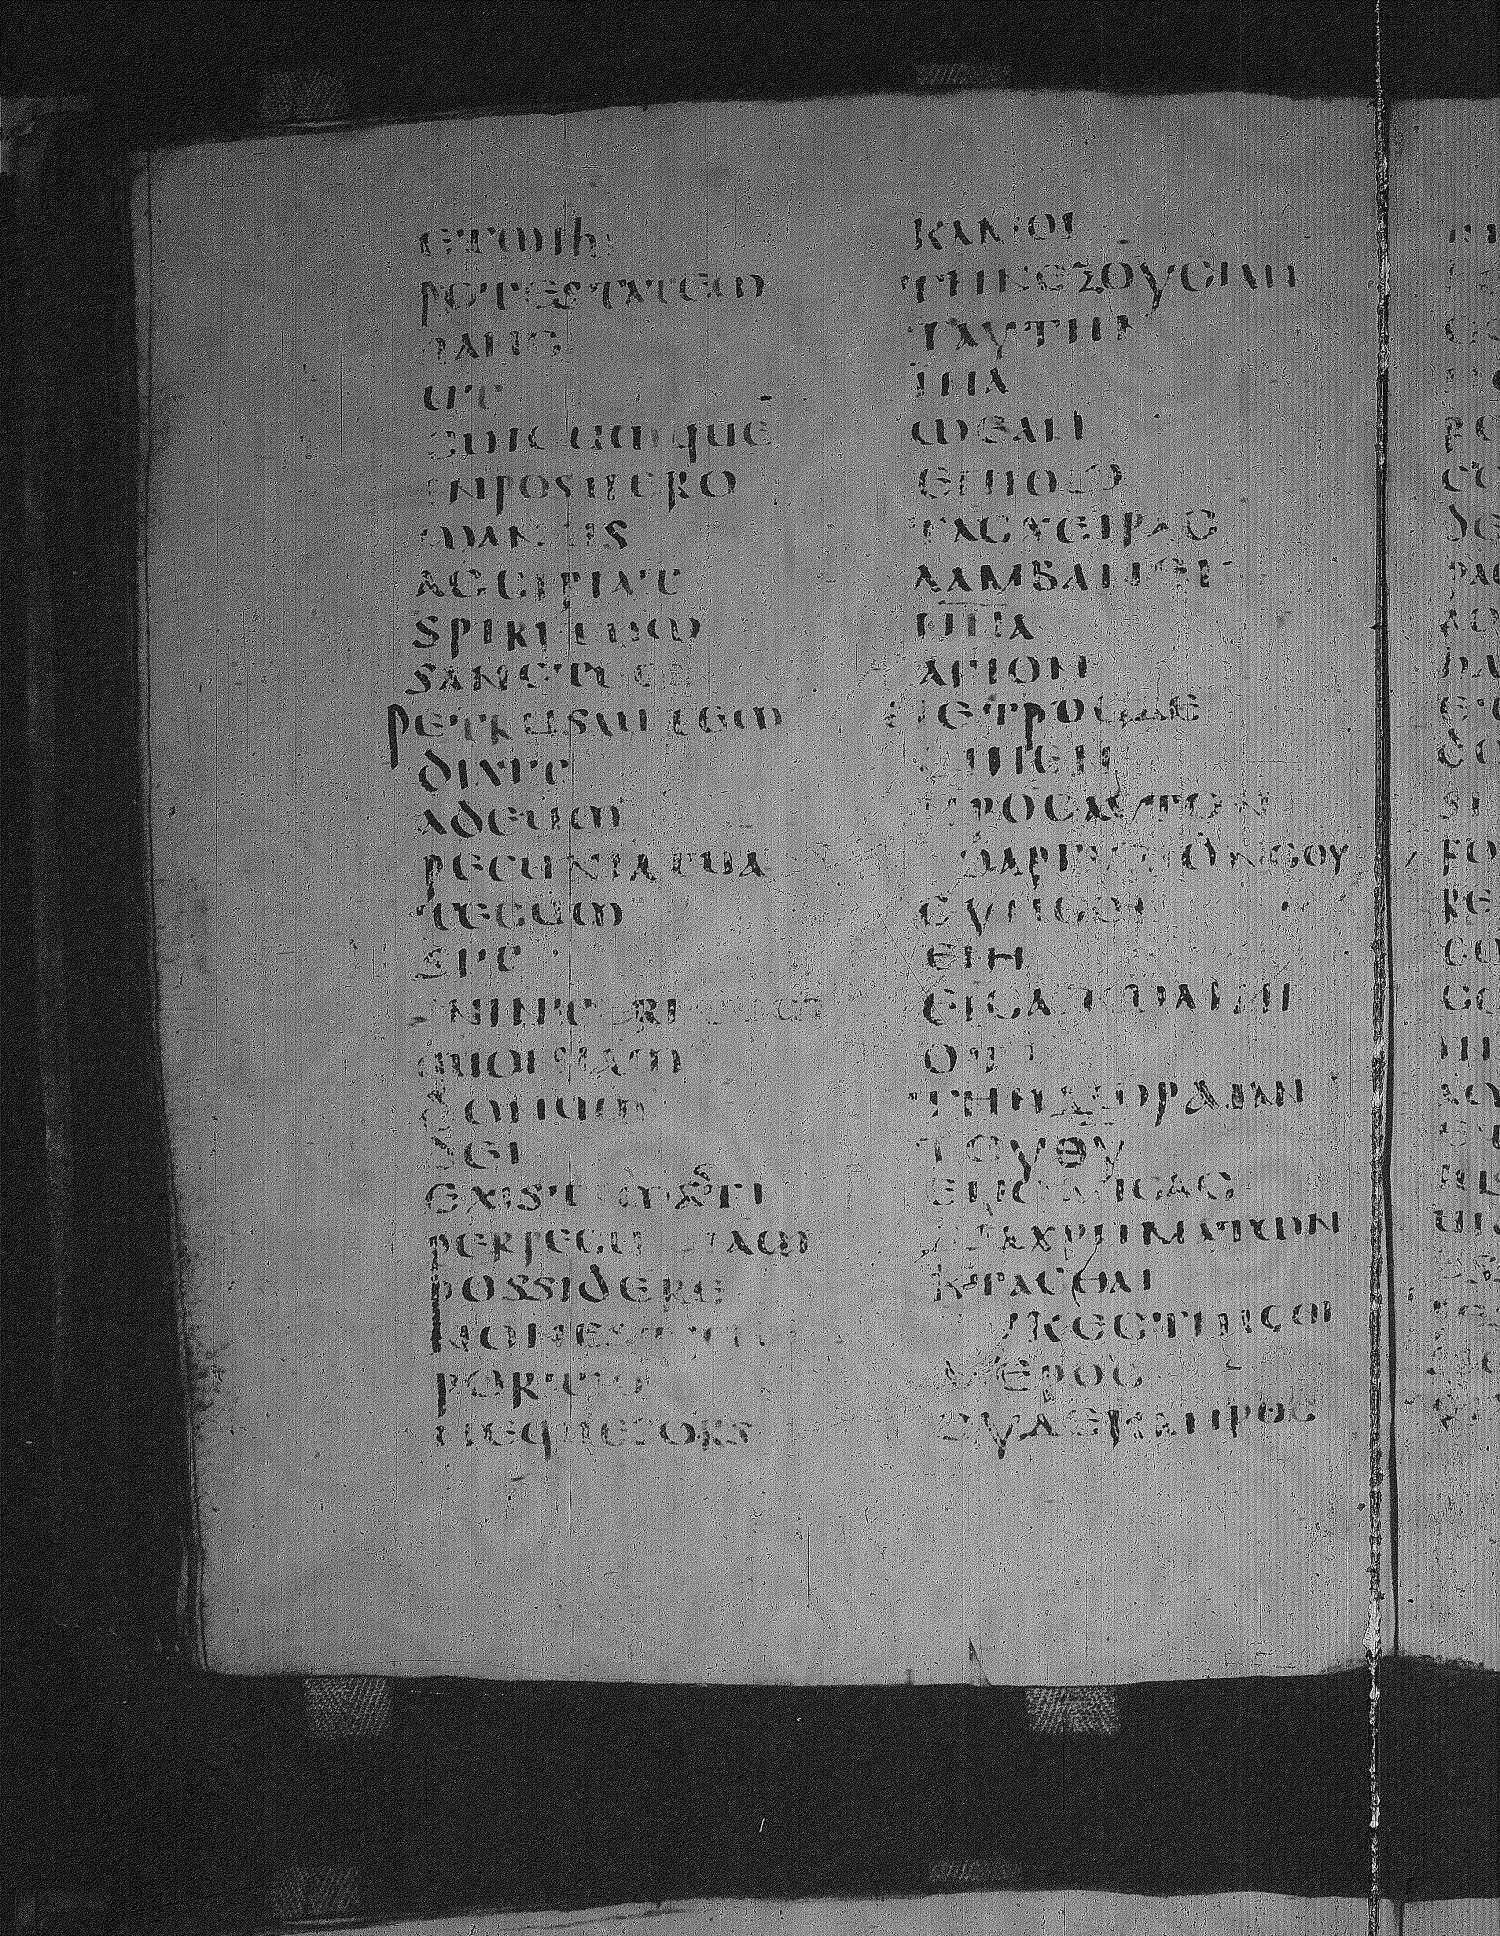 et mihi
potestatem
hanc
ut
cuicumque
inposuero
manus
accipiat
spiritum
sanctum
petrus autem
dixit
ad eum
pecunia tua
tecum
sit
in interitum
quoniam
donum
dei
existimasti
per pecuniam
possidere
non est tibi
portio
neque sors
ΚΑΜΟΙ
ΤΗΝ ΕΞΟΥϹΙΑΝ
ΤΑΥΤΗΝ
ΙΝΑ
Ω ΕΑΝ
ΕΠΙΘΩ
ΤΑϹ ΧΕΙΡΑϹ
ΛΑΜΒΑΝΕΙ
Π̅Ν̅Α̅
ΑΓΙΟΝ
ΠΕΤΡΟϹ ΔΕ
ΕΙΠΕΝ
ΠΡΟϹ ΑΥΤΟΝ
ΤΟ ΑΡΓΥΡΙΟΝ ϹΟΥ
ϹΥΝ ϹΟΙ
ΕΙΗ
ΕΙϹ ΑΠΩΛΙΑΝ
ΟΤΙ
ΤΗΝ ΔΩΡΑΙΑΝ
ΤΟΥ ΘΥ
ΕΝΟΜΙϹΑϹ
ΔΙΑ ΧΡΗΜΑΤΩΝ
ΚΤΑϹΘΑΙ
ΟΥΚ ΕϹΤΙΝ ϹΟΙ
ΜΕΡΟϹ
ΟΥΔΕ ΚΛΗΡΟϹ